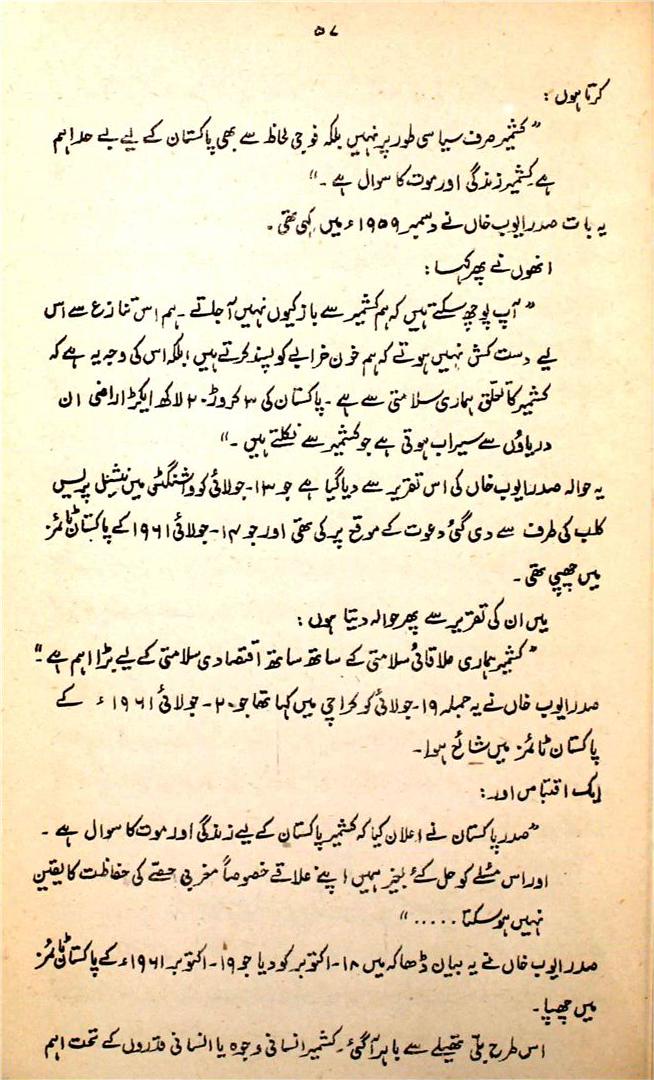 ۵۷
کرتا ہوں :
"کشمیر صرف سیاسی طور پر نہیں بلکہ فوجی لحاظ سے بھی پاکستان کے لیے بے حد اہم
ہے کشمیر زندگی اور موت کا سوال ہے ۔"
یہ بات صدر ایوب خاں نے دسمبر ۱۹۵۹ء میں کہی تھی ۔
انھوں نے پھر کہا :
"آپ پوچھ سکتے ہیں کہ ہم کشمیر سے باز کیوں نہیں آ جاتے ۔ ہم اس تنازع سے اس
لیے دست کش نہیں ہوتے کہ ہم خون خرابے کو پسند کرتے ہیں، بلکہ اس کی وجہ یہ ہے کہ
کشمیر کا تعلق ہماری سلامتی سے ہے ۔ پاکستان کی ۳ کروڑ ۲۰ لاکھ ایکڑ اراضی ان
دریاؤں سے سیراب ہوتی ہے جو کشمیر سے نکلتے ہیں ۔"
یہ حوالہ صدر ایوب خاں کی اس تقریر سے دیا گیا ہے جو ۱۳۔ جولائی کو واشنگٹن میں نیشنل پریس
کلب کی طرف سے دی گئی دعوت کے موقع پر کی تھی اور جو ۱۴۔ جولائی ۱۹۶۱ کے پاکستان ٹائمز
میں چھپی تھی ۔
میں ان کی تقریر سے پھر حوالہ دیتا ہوں :
"کشمیر ہماری علاقائی سلامتی کے ساتھ ساتھ اقتصادی سلامتی کے لیے بڑا اہم ہے ۔"
صدر ایوب خاں نے یہ جملہ ۱۹۔ جولائی کو کراچی میں کہا تھا جو ۲۰۔ جولائی ۱۹۶۱ء کے
پاکستان ٹائمز میں شائع ہوا ۔
ایک اقتباس اور :
"صدر پاکستان نے اعلان کیا کہ کشمیر پاکستان کے لیے زندگی اور موت کا سوال ہے ۔
اور اس مسئلے کو حل کئے بغیر ہمیں اپنے علاقے خصوصاً مغربی حصے کی حفاظت کا یقین
نہیں ہو سکتا ....."
صدر ایوب خاں نے یہ بیان ڈھاکہ میں ۱۸۔ اکتوبر کو دیا جو ۱۹۔ اکتوبر ۱۹۶۱ء کے پاکستان ٹائمز
میں چھپا ۔
اس طرح بلی تھیلے سے باہر آ گئی ۔ کشمیر انسانی وجوہ یا انسانی قدروں کے تحت اہم